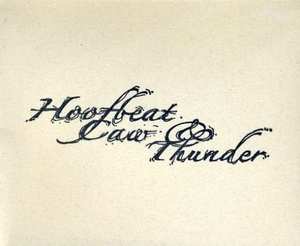 Hoofbeat
Caw &
Thunder